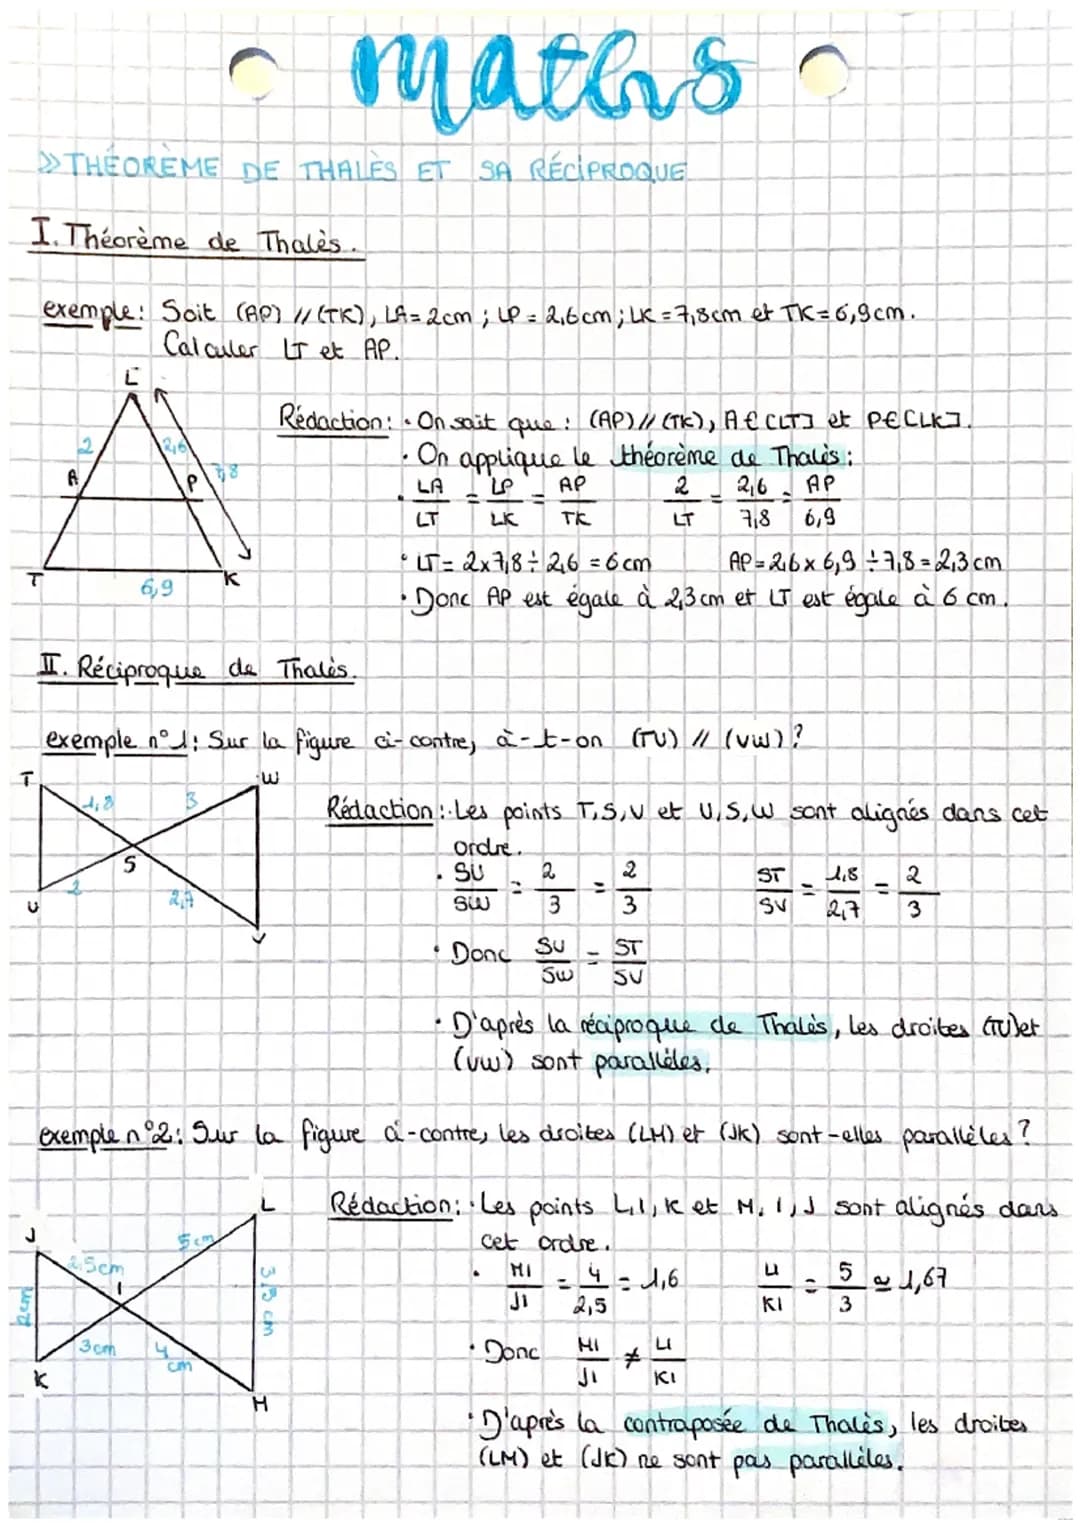 maths
>> THÉORÈME DE THALÈS ET SA RÉCIPROQUE
I. Théorème de Thalès.
exemple: Soit (AP) // (TK), LA = 2cm ; LP = 2,6cm ; LK = 7,8cm et TK = 6,9cm.
Calculer LT et AP.
L
2
2,6
7,8
A
P
T
6,9
K
Rédaction: · On sait que : (AP) // (TK), A € [LT] et P € [LK].
· On applique le théorème de Thalès :
· LA/LT = LP/LK = AP/TK 2/LT = 2,6/7,8 = AP/6,9
· LT = 2x7,8 ÷ 2,6 = 6cm AP = 2,6 x 6,9 ÷ 7,8 = 2,3 cm
· Donc AP est égale à 2,3 cm et LT est égale à 6 cm.
II. Réciproque de Thalès.
exemple n°1: Sur la figure ci-contre, à-t-on (TU) // (VW) ?
T
W
1,8
3
S
2
2,7
U
V
Rédaction : · Les points T, S, V et U, S, W sont alignés dans cet
ordre.
· SU/SW = 2/3 = 2/3 ST/SV = 1,8/2,7 = 2/3
· Donc SU/SW = ST/SV
· D'après la réciproque de Thalès, les droites (TU) et
(VW) sont parallèles.
exemple n°2: Sur la figure ci-contre, les droites (LM) et (JK) sont-elles parallèles ?
L
J
5cm
2,5cm
I
2cm
3,5 cm
3cm
4
cm
K
M
Rédaction: · Les points L, I, K et M, I, J sont alignés dans
cet ordre.
· MI/JI = 4/2,5 = 1,6 LI/KI = 5/3 ≃ 1,67
· Donc MI/JI ≠ LI/KI
· D'après la contraposée de Thalès, les droites
(LM) et (JK) ne sont pas parallèles.